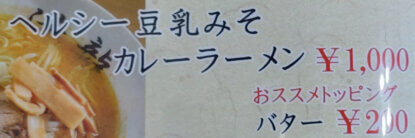 ヘルシー豆乳みそ
カレーラーメン ¥1,000
おススメトッピング
バター ¥200